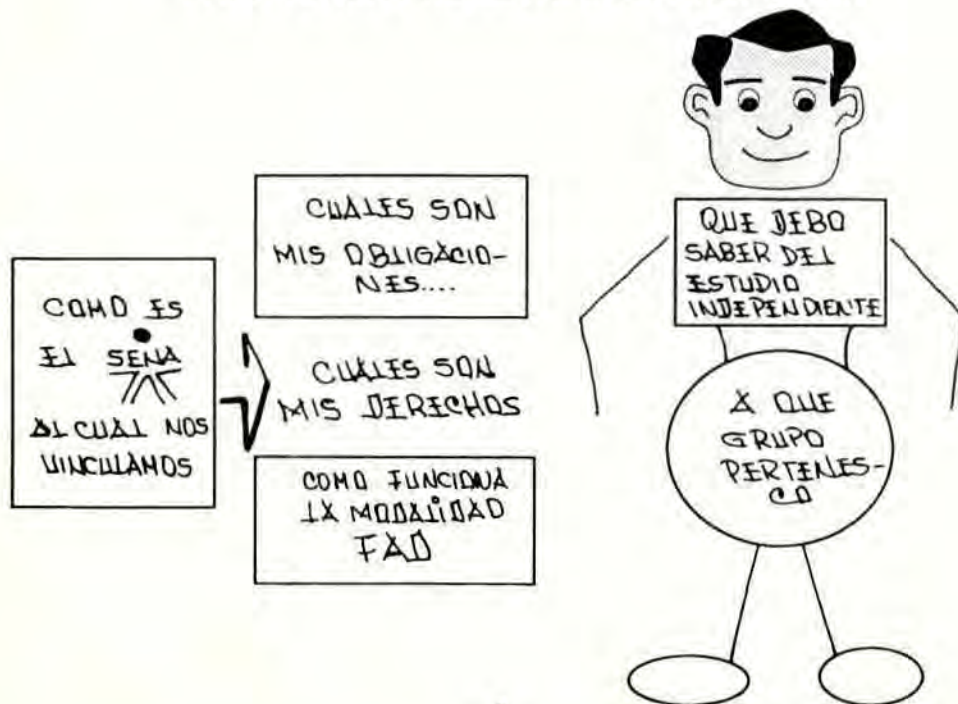 COMO ES
EL SENA
AL CUAL NOS
VINCULAMOS
CUALES SON
MIS OBLIGACIO-
NES....
CUALES SON
MIS DERECHOS
COMO FUNCIONA
LA MODALIDAD
FAD
QUE DEBO
SABER DEL
ESTUDIO
INDEPENDIENTE
A QUE
GRUPO
PERTENES-
CO